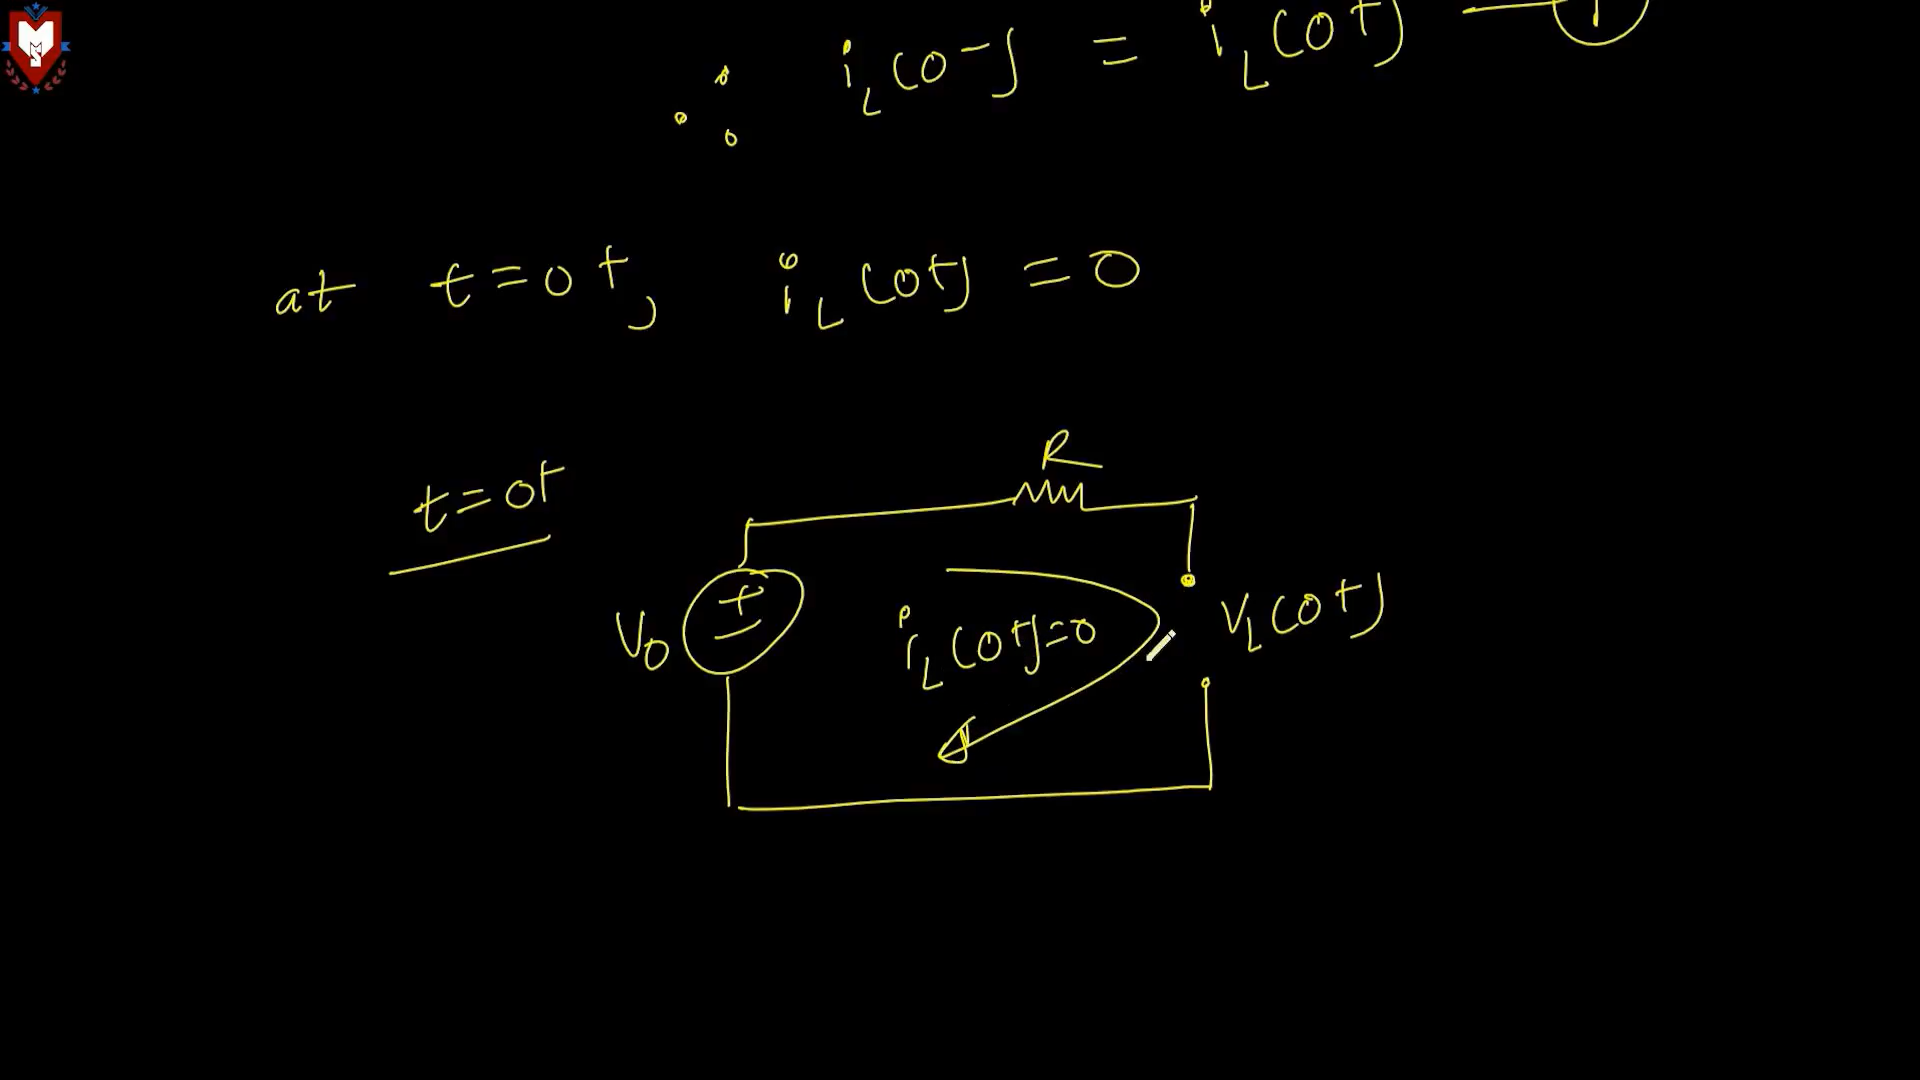 ∴ i_L(0-) = i_L(0+) — 1
at t=0+, i_L(0+) = 0
t=0+
R
V0
+
-
i_L(0+)=0
V_L(0+)
M
S